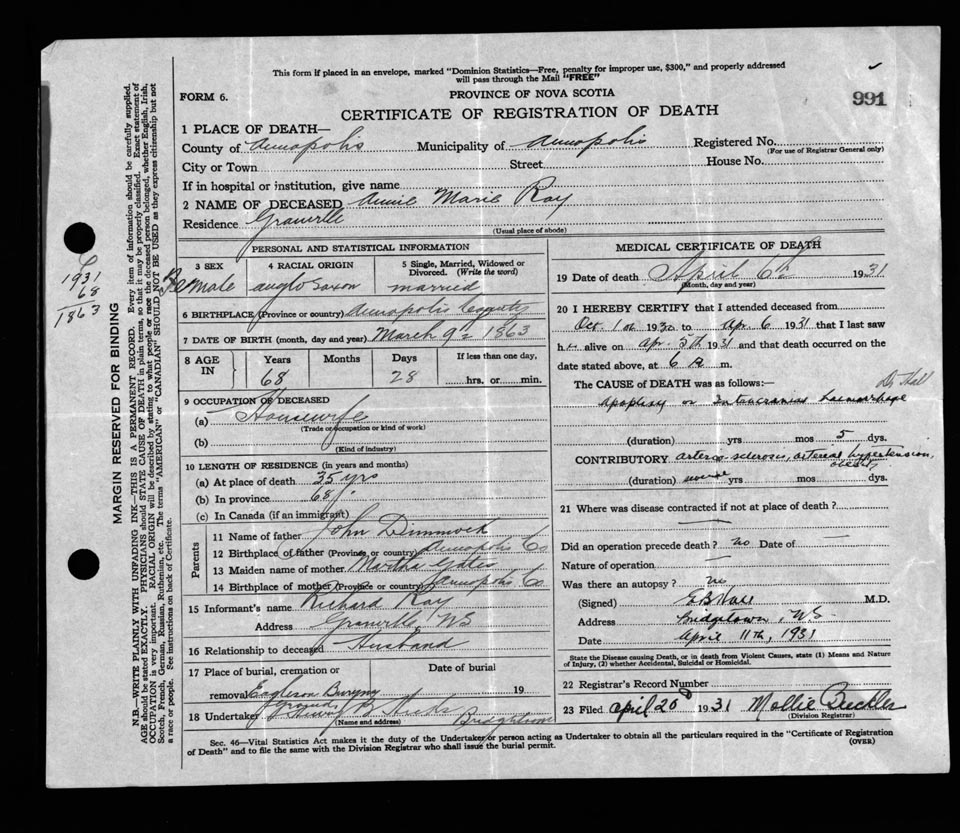 This form if placed in an envelope, marked "Dominion Statistics—Free, penalty for improper use, $300," and properly addressed
will pass through the Mail "FREE"
FORM 6.
PROVINCE OF NOVA SCOTIA
991
CERTIFICATE OF REGISTRATION OF DEATH
1 PLACE OF DEATH—
County of Annapolis Municipality of Annapolis Registered No.
(For use of Registrar General only)
City or Town Street House No.
If in hospital or institution, give name
2 NAME OF DECEASED Annie Marie Ray
Residence Granville
(Usual place of abode)
PERSONAL AND STATISTICAL INFORMATION
3 SEX 4 RACIAL ORIGIN 5 Single, Married, Widowed or Divorced. (Write the word)
Female anglo saxon married
6 BIRTHPLACE (Province or country) Annapolis County
7 DATE OF BIRTH (month, day and year) March 9th 1863
8 AGE IN Years Months Days If less than one day,
68 28 hrs. or min.
9 OCCUPATION OF DECEASED
(a) Housewife
(Trade or occupation or kind of work)
(b)
(Kind of industry)
10 LENGTH OF RESIDENCE (in years and months)
(a) At place of death 35 yrs
(b) In province 68 "
(c) In Canada (if an immigrant)
Parents
11 Name of father John Dimmock
12 Birthplace of father (Province or country) Annapolis Co
13 Maiden name of mother Martha Gates
14 Birthplace of mother (Province or country) Annapolis Co
15 Informant's name Richard Ray
Address Granville, NS
16 Relationship to deceased Husband
17 Place of burial, cremation or Date of burial
removal Eagleson Burying 19
Ground
18 Undertaker B. Hicks Bridgetown
(Name and address)
MEDICAL CERTIFICATE OF DEATH
19 Date of death April 6th 1931
(Month, day and year)
20 I HEREBY CERTIFY that I attended deceased from
Oct. 1st 1930 to Apr. 6 1931 that I last saw
her alive on Apr. 5th 1931 and that death occurred on the
date stated above, at 6 a m.
The CAUSE of DEATH was as follows:— Dr Hall
Apoplexy or Intracranial haemorrhage
(duration) yrs mos 5 dys.
CONTRIBUTORY arterio sclerosis, arterial hypertension,
obesity
(duration) yrs mos dys.
21 Where was disease contracted if not at place of death?
Did an operation precede death? no Date of —
Nature of operation —
Was there an autopsy? no
(Signed) M.D.
Address Bridgetown, N.S.
Date April 11th, 1931
State the Disease causing Death, or in death from Violent Causes, state (1) Means and Nature
of Injury, (2) whether Accidental, Suicidal or Homicidal.
22 Registrar's Record Number
23 Filed April 20 1931 Mollie
(Division Registrar)
Sec. 46—Vital Statistics Act makes it the duty of the Undertaker or person acting as Undertaker to obtain all the particulars required in the "Certificate of Registration
of Death" and to file the same with the Division Registrar who shall issue the burial permit.
(OVER)
1931
68
1863
MARGIN RESERVED FOR BINDING
N.B.—WRITE PLAINLY WITH UNFADING INK—THIS IS A PERMANENT RECORD. Every item of information should be carefully supplied.
AGE should be stated EXACTLY. PHYSICIANS should STATE CAUSE OF DEATH in plain terms, so that it may be properly classified. Exact statement of
OCCUPATION is very important. RACIAL ORIGIN will be described by stating to what people or race the deceased person belonged, whether English, Irish,
Scotch, French, German, Russian, Ruthenian, etc. The terms "AMERICAN" or "CANADIAN" SHOULD NOT BE USED as they express citizenship but not
a race or people. See instructions on back of Certificate.